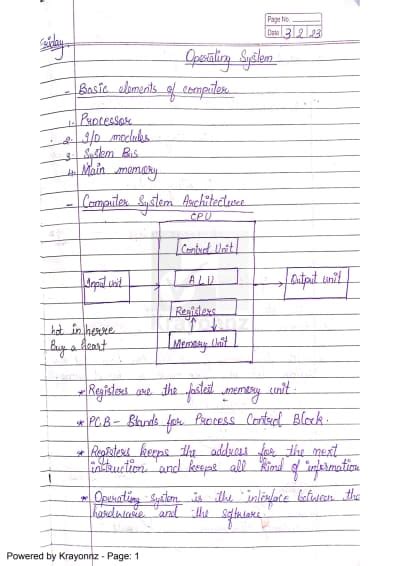 Page No.
Date 3 2 23
Friday
Operating System
- Basic elements of computer
1. Processor
2. I/O modules
3. System Bus
4. Main memory
- Computer System Architecture
CPU
Control Unit
Input unit
ALU
Output unit
Registers
Krayonnz
hot in herre
Buy a heart
Memory Unit
* Registers are the fastest memory unit.
* PCB - Stands for Process Control Block.
* Registers keeps the address for the next
instruction and keeps all kind of information
* Operating System is the interface between the
hardware and the software.
Powered by Krayonnz - Page: 1